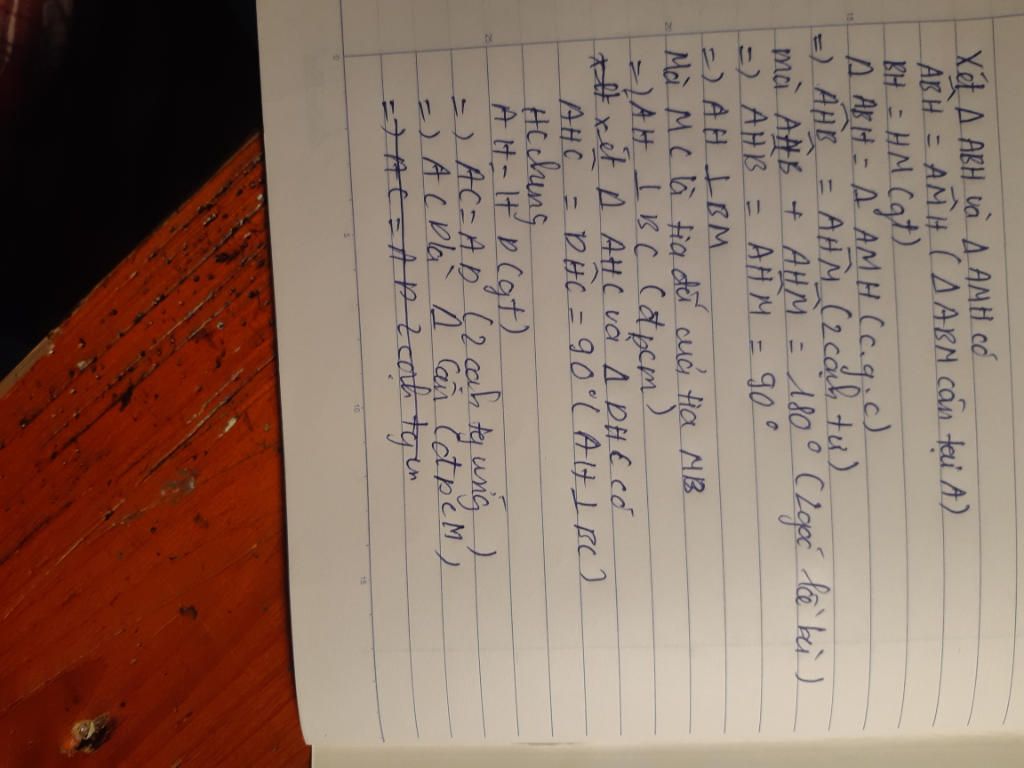 Xét Δ ABH và Δ AMH có
ABH = AMH ( Δ ABM cân tại A)
BH = HM (gt)
Δ ABH = Δ AMH (c.g.c)
=) AHB = AHM (2 cạnh tư)
mà AHB + AHM = 180° (2 góc kề bù)
=) AHB = AHM = 90°
=) AH ⊥ BM
Mà MC là tia đối của tia MB
=) AH ⊥ BC (đpcm)
xét Δ AHC và Δ DHC có
AHC = DHC = 90° ( AH ⊥ BC )
HC chung
AH = HD (gt)
=) AC = AD (2 cạnh tg ứng )
=) ACD là Δ cân (đpcM)
=) AC = AD 2 cạnh